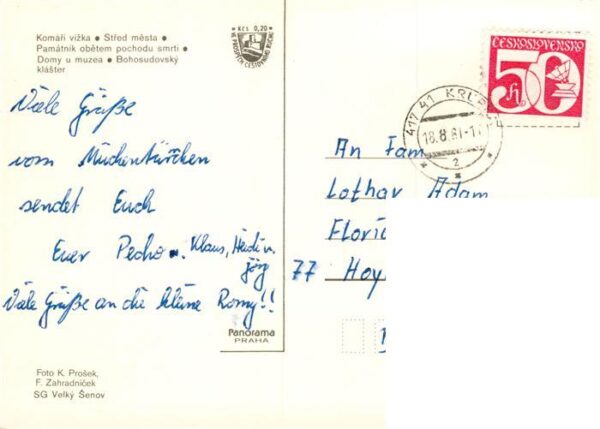 Komáří vížka • Střed města •
Památník obětem pochodu smrti •
Domy u muzea • Bohosudovský
klášter
Kčs 0,20
ČESKOSLOVENSKO
50
417 41 KRUPKA
18.8.81-17
2
Viele Grüße
vom Mückentürmchen
sendet Euch
Euer Pecho u. Klaus, Heidi u.
Jörg
Viele Grüße an die kleine Romy!!
An Fam
Lothar Adam
Flori
77 Hoy
Panorama
PRAHA
Foto K. Prošek,
F. Zahradníček
SG Velký Šenov